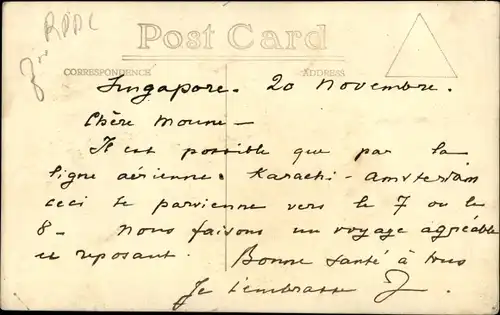 RPPC
Post Card
CORRESPONDENCE ADDRESS
Singapore. 20 Novembre.
Chère Moune —
Il est possible que par la
ligne aérienne. Karachi - Amsterdam
ceci te parvienne vers le 7 ou le
8 - Nous faisons un voyage agréable
et reposant. Bonne santé à tous
Je t'embrasse J.